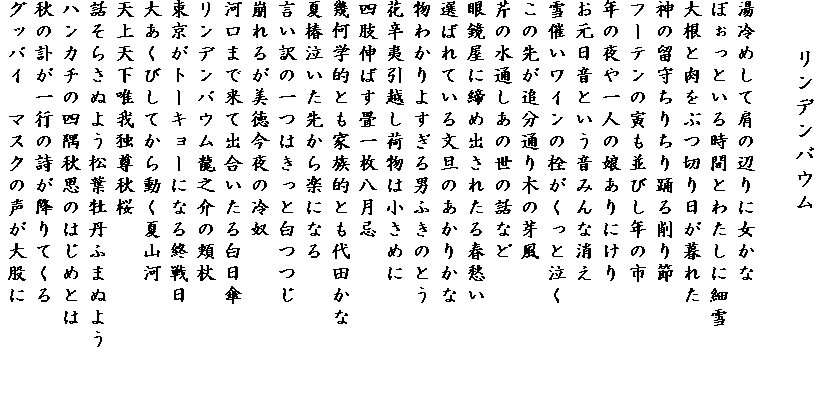 リンデンバウム
湯冷めして肩の辺りに女かな
ぼぉっといる時間とわたしに細雪
大根と肉をぶつ切り日が暮れた
神の留守ちりちり踊る削り節
フーテンの寅も並びし年の市
年の夜や一人の娘ありにけり
お元日音という音みんな消え
雪催いワインの栓がくっと泣く
この先が追分通り木の芽風
芹の水通しあの世の話など
眼鏡屋に締め出されたる春愁い
選ばれている文旦のあかりかな
物わかりよすぎる男ふきのとう
花辛夷引越し荷物は小さめに
四肢伸ばす畳一枚八月忌
幾何学的とも家族的とも代田かな
夏椿泣いた先から楽になる
言い訳の一つはきっと白つつじ
崩れるが美徳今夜の冷奴
河口まで来て出合いたる白日傘
リンデンバウム龍之介の頬杖
東京がトーキョーになる終戦日
大あくびしてから動く夏山河
天上天下唯我独尊秋桜
話そらさぬよう松葉牡丹ふまぬよう
ハンカチの四隅秋思のはじめとは
秋の訃が一行の詩が降りてくる
グッバイ　マスクの声が大股に